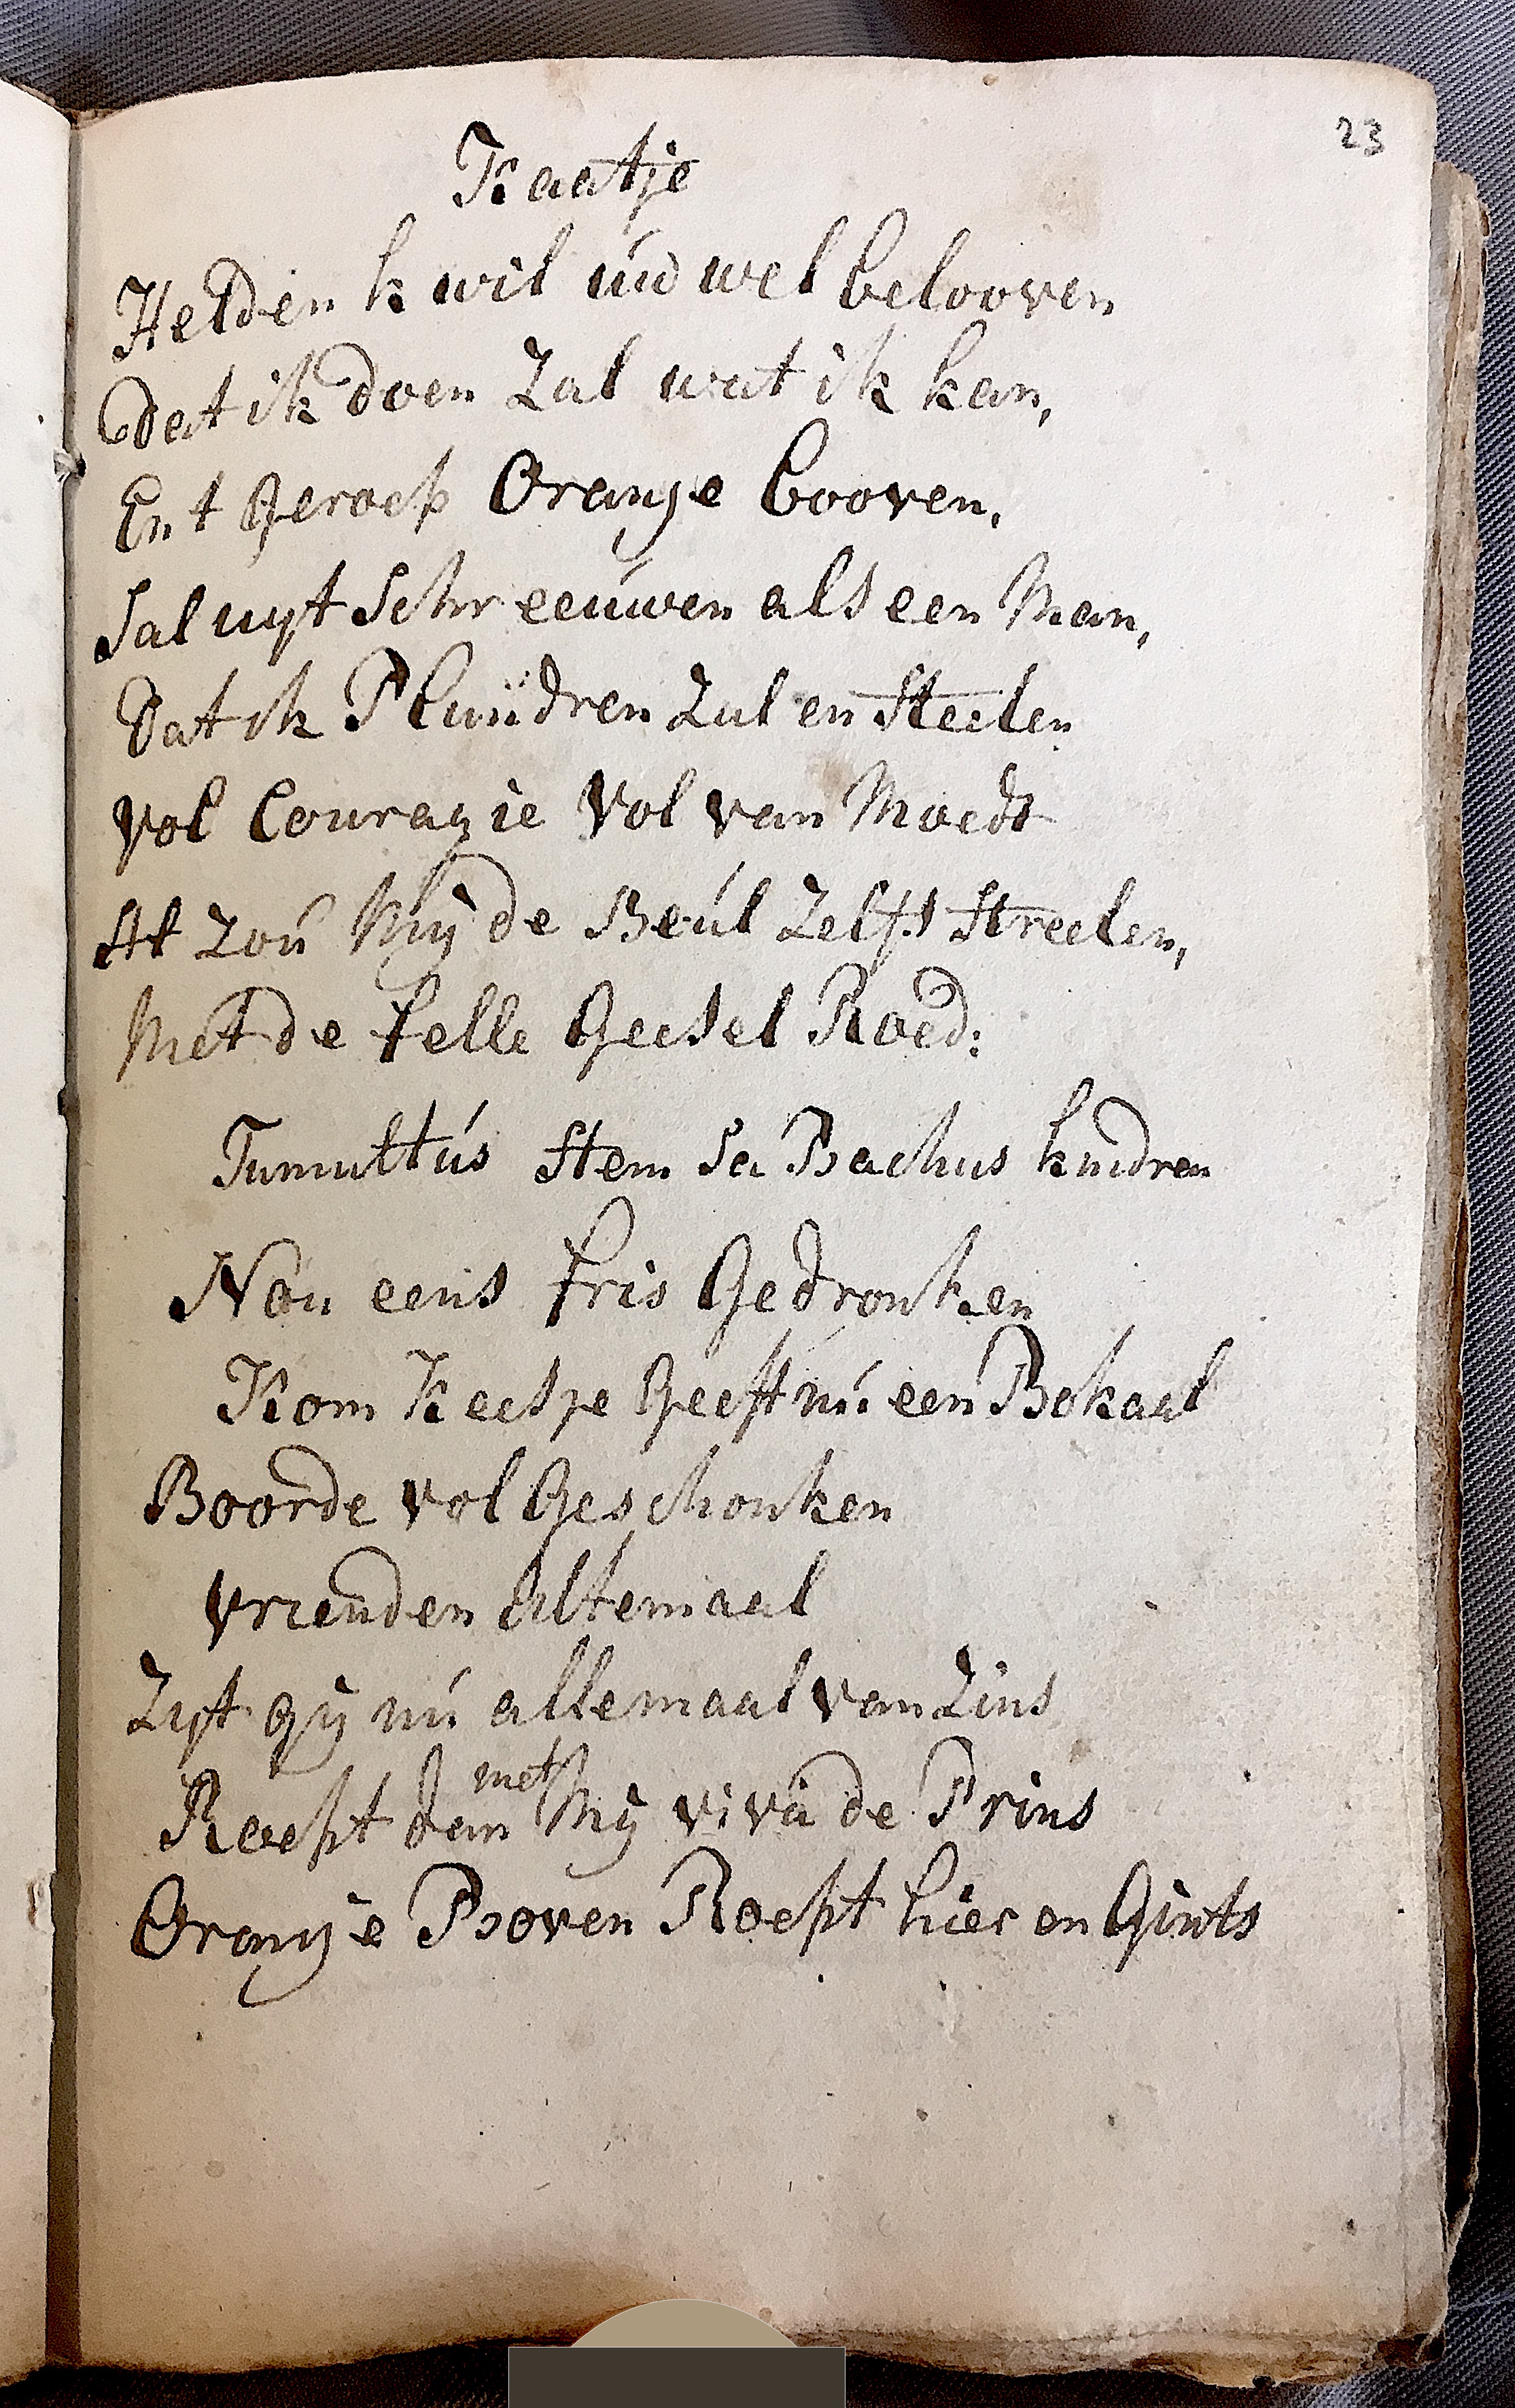 23
Kaatje
Helden k wil uw wel belooven
Dat ik doen Zal wat ik kan,
En t Geroep Oranje booven,
Sal uyt Schreeuwen als een Man,
Dat ik Plundren Zal en Steelen
Vol Couragie Vol van Moedt
Al Zou Mij de Beul Zelfs Streelen,
Met de felle Geesel Roed:
Tumultus Stem Sa Bachus kindren
Nou eens fris Gedronken
Kom Keesje Geeft nu een Bokaal
Boorde vol Geschonken
Vrienden Altemaal
Zijt gij nu allemaal van Zins
Roept dan met Mij viva de Prins
Oranje Boven Roept hier en Gints